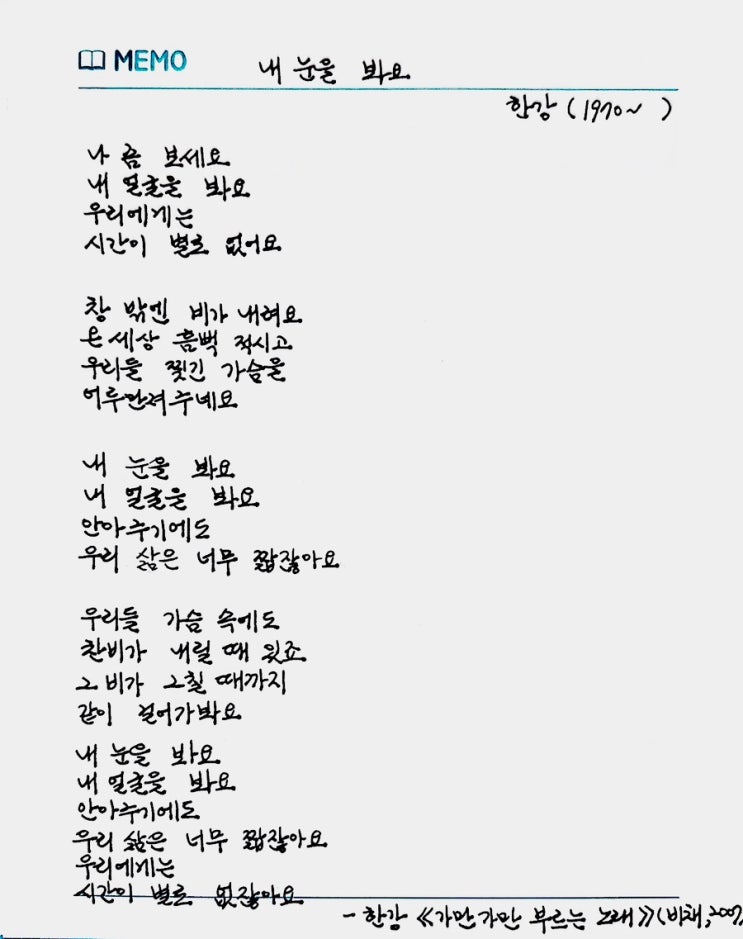 MEMO
내 눈을 봐요
한강 (1970~ )
나 좀 보세요
내 얼굴을 봐요
우리에게는
시간이 별로 없어요
창 밖엔 비가 내려요
온 세상 흠뻑 적시고
우리들 찢긴 가슴을
어루만져주네요
내 눈을 봐요
내 얼굴을 봐요
안아주기에도
우리 삶은 너무 짧잖아요
우리들 가슴 속에도
찬비가 내릴 때 있죠
그 비가 그칠 때까지
같이 걸어가봐요
내 눈을 봐요
내 얼굴을 봐요
안아주기에도
우리 삶은 너무 짧잖아요
우리에게는
시간이 별로 없잖아요
- 한강 《가만가만 부르는 노래》(비채, 2007,